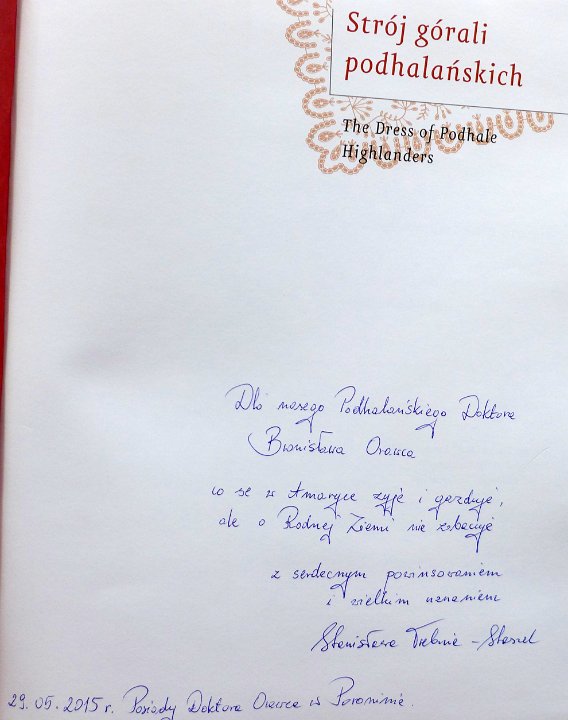 Strój górali
podhalańskich
The Dress of Podhale
Highlanders
Dlo nasego Podhalańskiego Doktora
Bronisława Orawca
co se w Amaryce zyje i gazduje,
ale o Rodnej Ziemi nie zabocuje
z serdecnym powinsowaniem
i wielkim uznaniem
Stanisława Trebunia-Staszel
29.05.2015 r. Posiady Doktora Orawca w Poroninie.